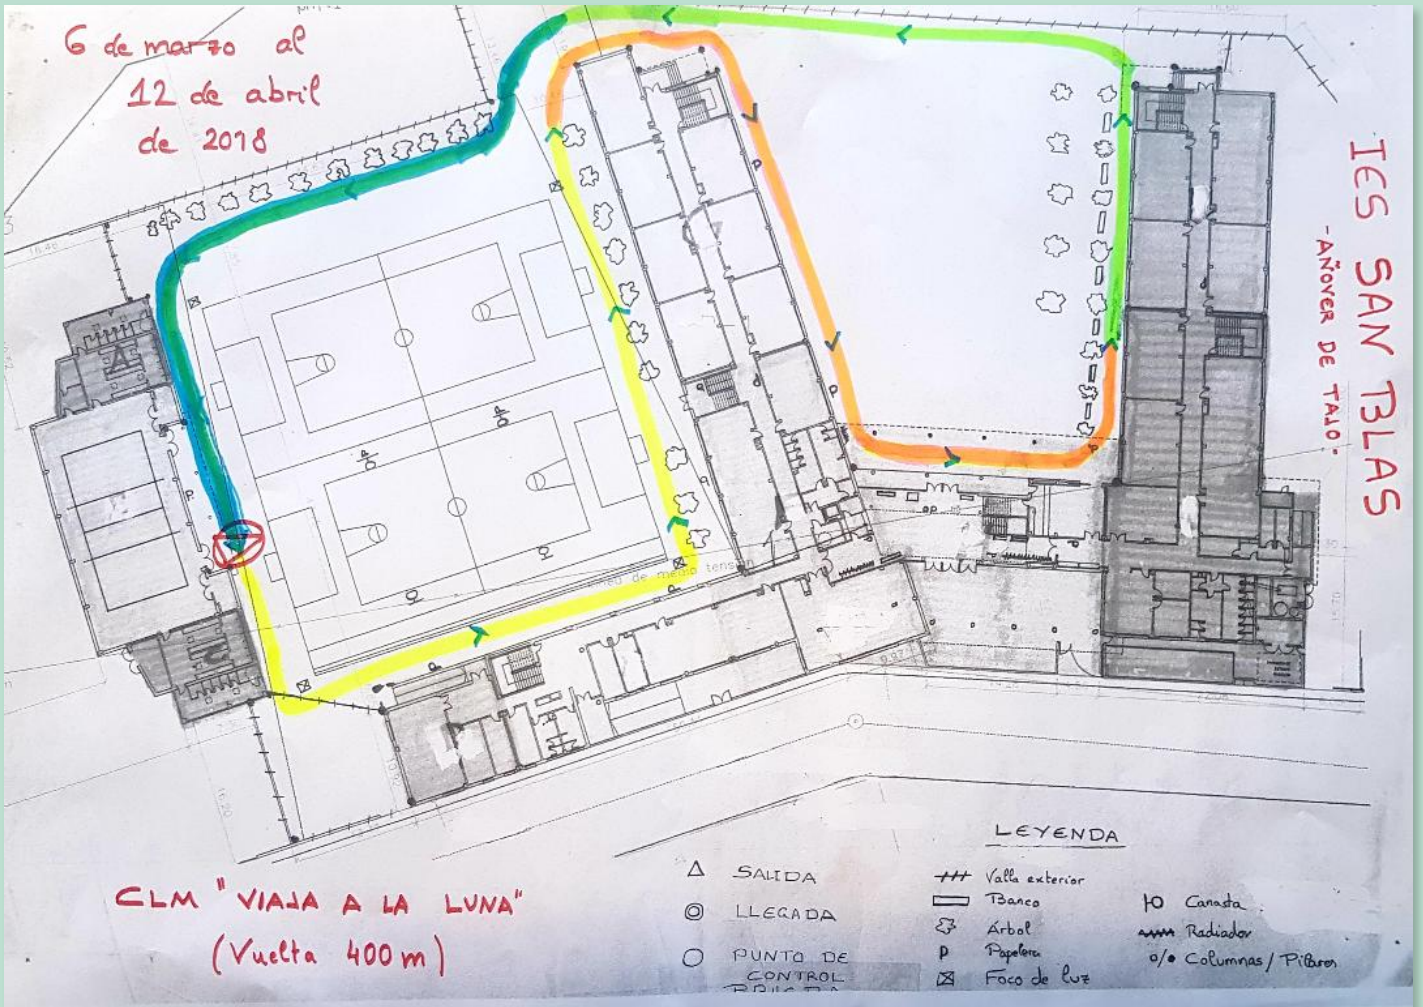 6 de marzo al
12 de abril
de 2018
IES SAN BLAS
-AÑOVER DE TAJO.
de media tension
CLM "VIAJA A LA LUNA"
(Vuelta 400 m)
LEYENDA
SALIDA
LLEGADA
PUNTO DE
CONTROL
Valla exterior
Banco
Árbol
P Papelera
Foco de luz
Canasta
Radiador
Columnas/Pilares